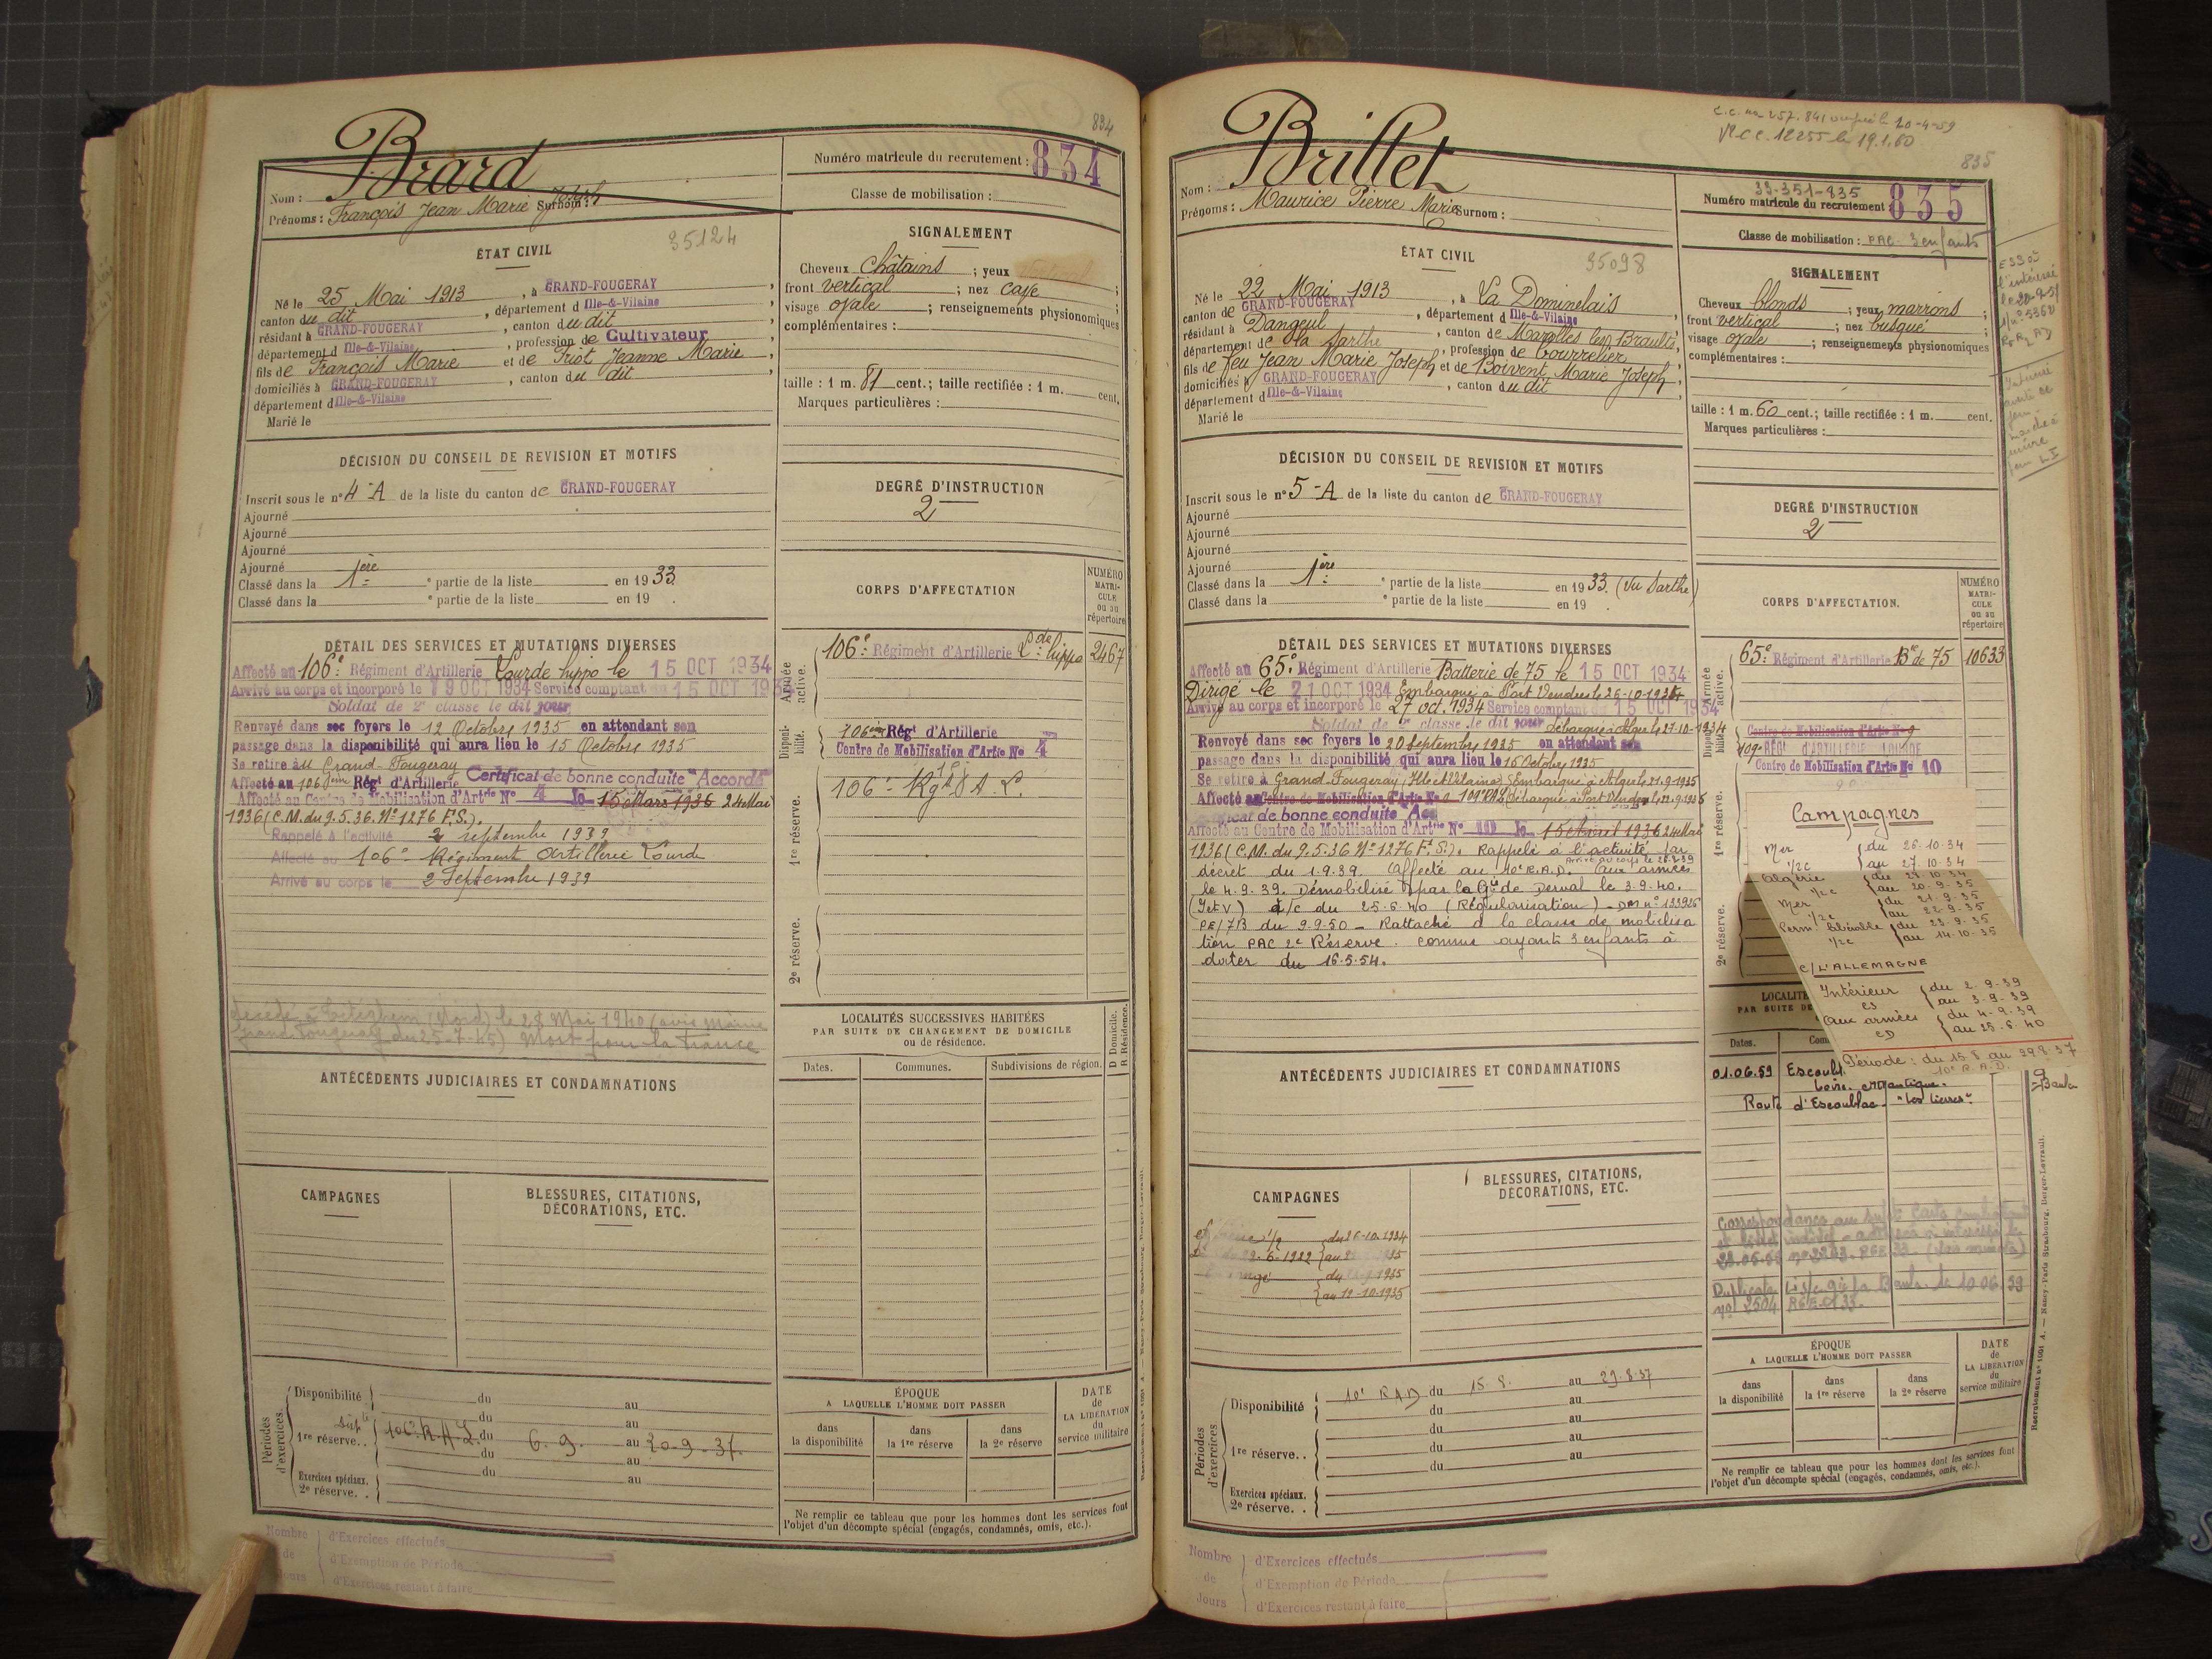 834
Brard
Nom :
Prénoms : François Jean Marie Joseph Surnom :
Numéro matricule du recrutement : 834
Classe de mobilisation :
ÉTAT CIVIL
35124
Né le 25 Mai 1913, à GRAND-FOUGERAY,
canton du dit, département d Ille-&-Vilaine
résidant à GRAND-FOUGERAY, canton du dit
département d Ille-&-Vilaine, profession de Cultivateur
fils de François Marie et de Triot Jeanne Marie,
domiciliés à GRAND-FOUGERAY, canton du dit
département d Ille-&-Vilaine
Marié le
SIGNALEMENT
Cheveux châtains ; yeux ;
front vertical ; nez cave ;
visage ovale ; renseignements physionomiques
complémentaires :
taille : 1 m. 81 cent.; taille rectifiée : 1 m. cent.
Marques particulières :
DÉCISION DU CONSEIL DE REVISION ET MOTIFS
Inscrit sous le n° 4-A de la liste du canton de GRAND-FOUGERAY
Ajourné
Ajourné
Ajourné
Ajourné
Classé dans la 1ère e partie de la liste en 1933.
Classé dans la e partie de la liste en 19 .
DEGRÉ D'INSTRUCTION
2
DÉTAIL DES SERVICES ET MUTATIONS DIVERSES
Affecté au 106e Régiment d'Artillerie Lourde hippo le 15 OCT 1934
Arrivé au corps et incorporé le 19 OCT 1934 Service comptant du 15 OCT 1934
Soldat de 2e classe le dit jour
Renvoyé dans ses foyers le 12 Octobre 1935 en attendant son
passage dans la disponibilité qui aura lieu le 15 Octobre 1935
Se retire à Grand-Fougeray
Affecté au 106ième Régt d'Artillerie Certificat de bonne conduite "Accordé"
Affecté au Centre de Mobilisation d'Artie N° 4 le 15 Mars 1936 24 Mai
1936 (C.M. du 9.5.36. N° 1276 F.S.).
Rappelé à l'activité 2 septembre 1939
Affecté au 106e Régiment Artillerie Lourde
Arrivé au corps le 2 Septembre 1939
décédé à (Nord) le 28 Mai 1940 (avis Mairie
Grand Fougeray du 25-7-45) Mort pour la France
CORPS D'AFFECTATION
NUMÉRO MATRI-CULE ou au répertoire
Armée active.
106e Régiment d'Artillerie Lde hippo 2467
Disponi-bilité.
106ème Régt d'Artillerie
Centre de Mobilisation d'Artie N° 4
1re réserve.
106e Rgt d'A.L.
2e réserve.
ANTÉCÉDENTS JUDICIAIRES ET CONDAMNATIONS
LOCALITÉS SUCCESSIVES HABITÉES
PAR SUITE DE CHANGEMENT DE DOMICILE
ou de résidence.
Dates. Communes. Subdivisions de région. D Domicile. R Résidence.
CAMPAGNES
BLESSURES, CITATIONS,
DÉCORATIONS, ETC.
Périodes d'exercices.
Disponibilité du au
du au
1re réserve.. 106e R.A.L. du 6.9. au 20-9-37.
du au
du au
Exercices spéciaux.
2e réserve. .
ÉPOQUE
A LAQUELLE L'HOMME DOIT PASSER
dans la disponibilité dans la 1re réserve dans la 2e réserve
DATE de LA LIBÉRATION du service militaire
Ne remplir ce tableau que pour les hommes dont les services font
l'objet d'un décompte spécial (engagés, condamnés, omis, etc.).
Nombre de Jours
d'Exercices effectués
d'Exemption de Période
d'Exercices restant à faire
C.C. no 257.841 le 20-4-59
C.C. 12255 le 19.1.60
835
Brillet
Nom :
Prénoms : Maurice Pierre Marie Surnom :
33-351-835
Numéro matricule du recrutement 835
Classe de mobilisation : PAC. 3 enfants
ÉTAT CIVIL
35098
Né le 22 Mai 1913, à La Dominelais,
canton de GRAND-FOUGERAY, département d Ille-&-Vilaine
résidant à Dangeul, canton de Marolles les Braults,
département de la Sarthe, profession de bourrelier
fils de feu Jean Marie Joseph et de Boivent Marie Joseph,
domiciliés à GRAND-FOUGERAY, canton du dit
département d Ille-&-Vilaine
Marié le
SIGNALEMENT
Cheveux blonds ; yeux marrons ;
front vertical ; nez busqué ;
visage ovale ; renseignements physionomiques
complémentaires :
taille : 1 m. 60 cent.; taille rectifiée : 1 m. cent.
Marques particulières :
DÉCISION DU CONSEIL DE REVISION ET MOTIFS
Inscrit sous le n° 5-A de la liste du canton de GRAND-FOUGERAY
Ajourné
Ajourné
Ajourné
Ajourné
Classé dans la 1ère e partie de la liste en 1933. (Vu Sarthe)
Classé dans la e partie de la liste en 19 .
DEGRÉ D'INSTRUCTION
2
DÉTAIL DES SERVICES ET MUTATIONS DIVERSES
Affecté au 65e Régiment d'Artillerie Batterie de 75 le 15 OCT 1934
Dirigé le 21 OCT 1934 Embarqué à Port Vendres le 26-10-1934
Arrivé au corps et incorporé le 27 oct. 1934 Service comptant du 15 OCT 1934
Soldat de 2e classe le dit jour Débarqué à Alger le 27-10-1934
Renvoyé dans ses foyers le 20 Septembre 1935 en attendant son
passage dans la disponibilité qui aura lieu le 15 Octobre 1935
Se retire à Grand Fougeray, Ille et Vilaine Embarqué à Alger le 21.9.1935
Affecté au Centre de Mobilisation d'Artie N° 9 109e RAL Débarqué à Port Vendres le 22.9.1935
Certificat de bonne conduite Acc
Affecté au Centre de Mobilisation d'Artie N° 10 le 15 Avril 1936 24 Mai
1936 (C.M. du 9.5.36 N° 1276 F.S.). Rappelé à l'activité par
décret du 1.9.39. Affecté au 10e R.A.D. Arrivé au corps le 26.8.39 aux armées
le 4.9.39. Démobilisé par la Gie de Derval le 3.9.40.
(I et V) à/c du 25.6.40 (Régularisation) - DM n° 132926
PE/7B du 9.9.50 - Rattaché à la classe de mobilisa
tion PAC 2e Réserve. comme ayant 3 enfants à
dater du 16.5.54.
CORPS D'AFFECTATION.
NUMÉRO MATRI-CULE ou au répertoire
Armée active.
65e Régiment d'Artillerie Bie de 75 10633
Disponi-bilité.
Centre de Mobilisation d'Artie N° 9
109e RÉGt D'ARTILLERIE LOURDE
Centre de Mobilisation d'Artie N° 10
1re réserve.
2e réserve.
Campagnes
Mer 1/2c du 26-10-34 au 27.10-34
Algérie 1/2c du 28-10-34 au 20-9-35
Mer 1/2c du 21-9-35 au 22-9-35
Perm. libérable 1/2c du 23.9-35 au 14-10-35
c/ L'ALLEMAGNE
Intérieur CS du 2-9-39 au 3-9-39
aux armées CD du 4-9-39 au 25-6-40
Période : du 15 8 au 29.8-37
10e R.A.D.
LOCALITÉS
PAR SUITE DE
Dates. Com
01.06.59 Escoubl
Loire Atlantique.
Route d'Escoublac - "Les Lierres".
ANTÉCÉDENTS JUDICIAIRES ET CONDAMNATIONS
CAMPAGNES
du 26-10-1934
au 12-10-1935
BLESSURES, CITATIONS,
DÉCORATIONS, ETC.
Correspondance au sujet Carte combattant
Duplicata La Baule le 10 06 59
n° 2504
Périodes d'exercices.
Disponibilité 10e RAD du 15.8. au 29.8.37
du au
du au
1re réserve.. du au
du au
Exercices spéciaux.
2e réserve. .
ÉPOQUE
A LAQUELLE L'HOMME DOIT PASSER
dans la disponibilité dans la 1re réserve dans la 2e réserve
DATE de LA LIBÉRATION du service militaire
Ne remplir ce tableau que pour les hommes dont les services font
l'objet d'un décompte spécial (engagés, condamnés, omis, etc.).
Recrutement n° 1001 A. — Nancy-Paris-Strasbourg, Berger-Levrault.
Nombre de Jours
d'Exercices effectués
d'Exemption de Période
d'Exercices restant à faire